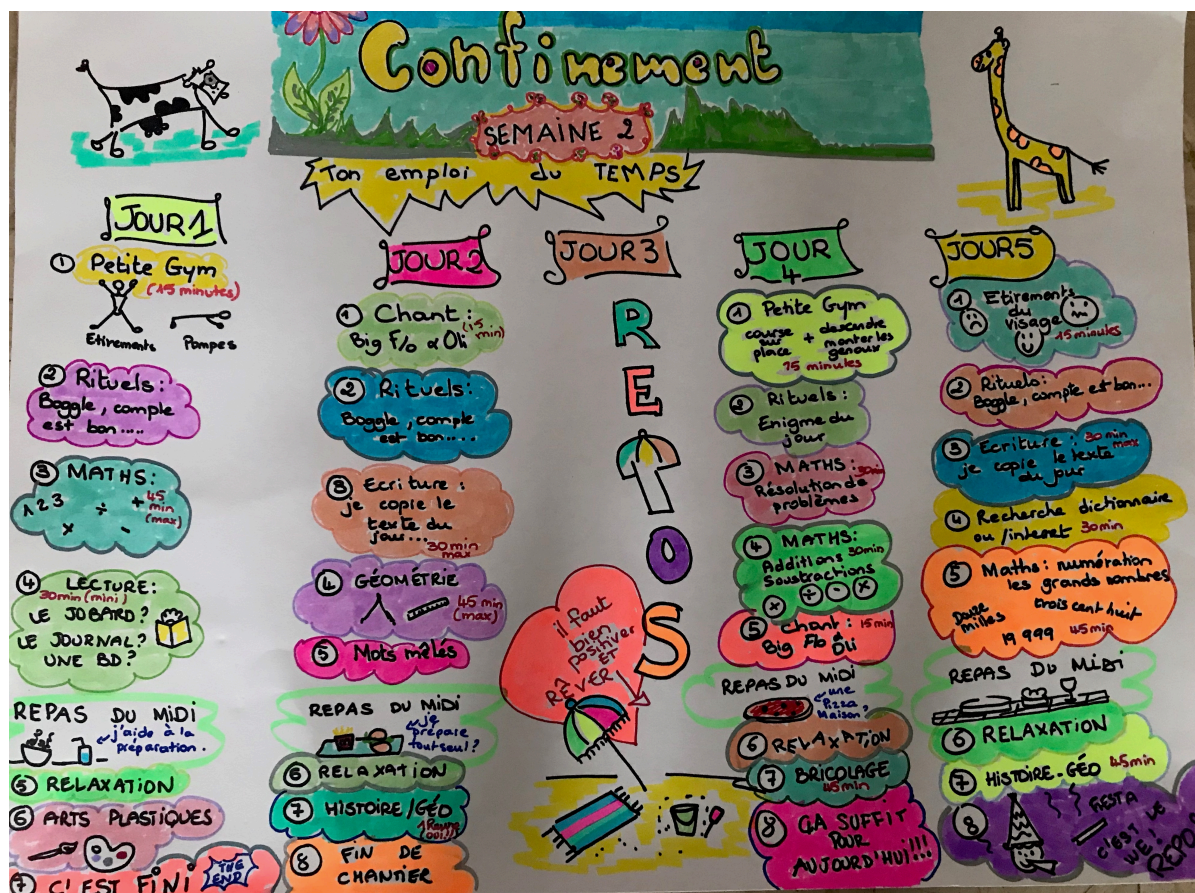 Confinement
SEMAINE 2
Ton emploi du TEMPS
JOUR 1
① Petite Gym
(15 minutes)
Etirements Pompes
② Rituels:
Boggle, compte
est bon.....
③ MATHS:
1 2 3 ÷ +
x -
45
min
(max)
④ LECTURE:
30min (mini)
LE JOBARD?
LE JOURNAL?
UNE BD?
REPAS DU MIDI
j'aide à la
préparation.
⑤ RELAXATION
⑥ ARTS PLASTIQUES
⑦ C'EST FINI
THE
END
JOUR 2
① Chant:
(15
min)
Big Flo & Oli
② Rituels:
Boggle, compte
est bon.....
③ Ecriture:
je copie le
texte du
jour...
30min
max
④ GÉOMÉTRIE
45 min
(max)
⑤ Mots mêlés
REPAS DU MIDI
je
prépare
tout seul?
⑥ RELAXATION
⑦ HISTOIRE/GÉO
⑧ FIN DE
CHANTIER
JOUR 3
R
E
P
O
S
il faut
bien
positiver
ET
RÊVER
JOUR
4
① Petite Gym
course + descendre
sur monter les
place genoux
15 minutes
② Rituels:
Enigme du
jour
③ MATHS: 30min
Résolution de
problèmes
④ MATHS:
Additions 30min
Soustractions
x ÷ - x
⑤ Chant: 15min
Big Flo & Oli
REPAS DU MIDI
une
Pizza
Maison,
⑥ RELAXATION
⑦ BRICOLAGE
45min
⑧ ÇA SUFFIT
POUR
AUJOURD'HUI!!!
JOUR 5
① Etirements
du
visage
15 minutes
② Rituels:
Boggle, compte est bon...
③ Ecriture: 30min
max
je copie le texte
du jour
④ Recherche dictionnaire
ou /internet 30min
⑤ Maths: numération
les grands nombres
Douze
milles
trois cent huit
19 999 45min
REPAS DU MIDI
⑥ RELAXATION
⑦ HISTOIRE-GÉO 45min
⑧ FIESTA
C'EST LE
WE:
REPOS